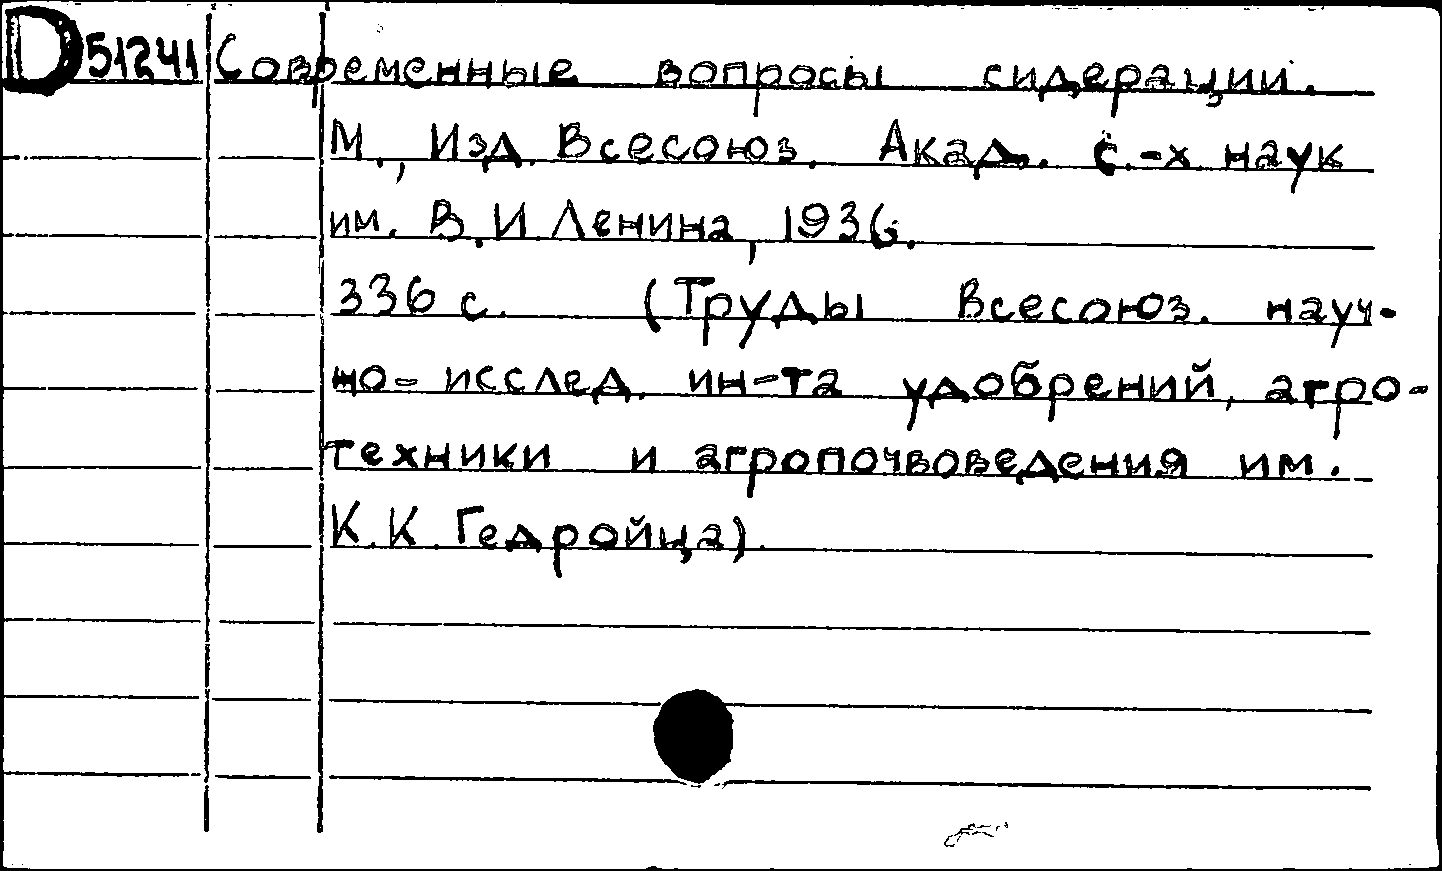 D 51241 Современные вопросы сидерации.
М., Изд. Всесоюз. Акад. с.-х. наук
им. В.И. Ленина, 1936.
336 с. (Труды Всесоюз. науч-
но-исслед. ин-та удобрений, агро-
техники и агропочвоведения им.
К.К. Гедройца).